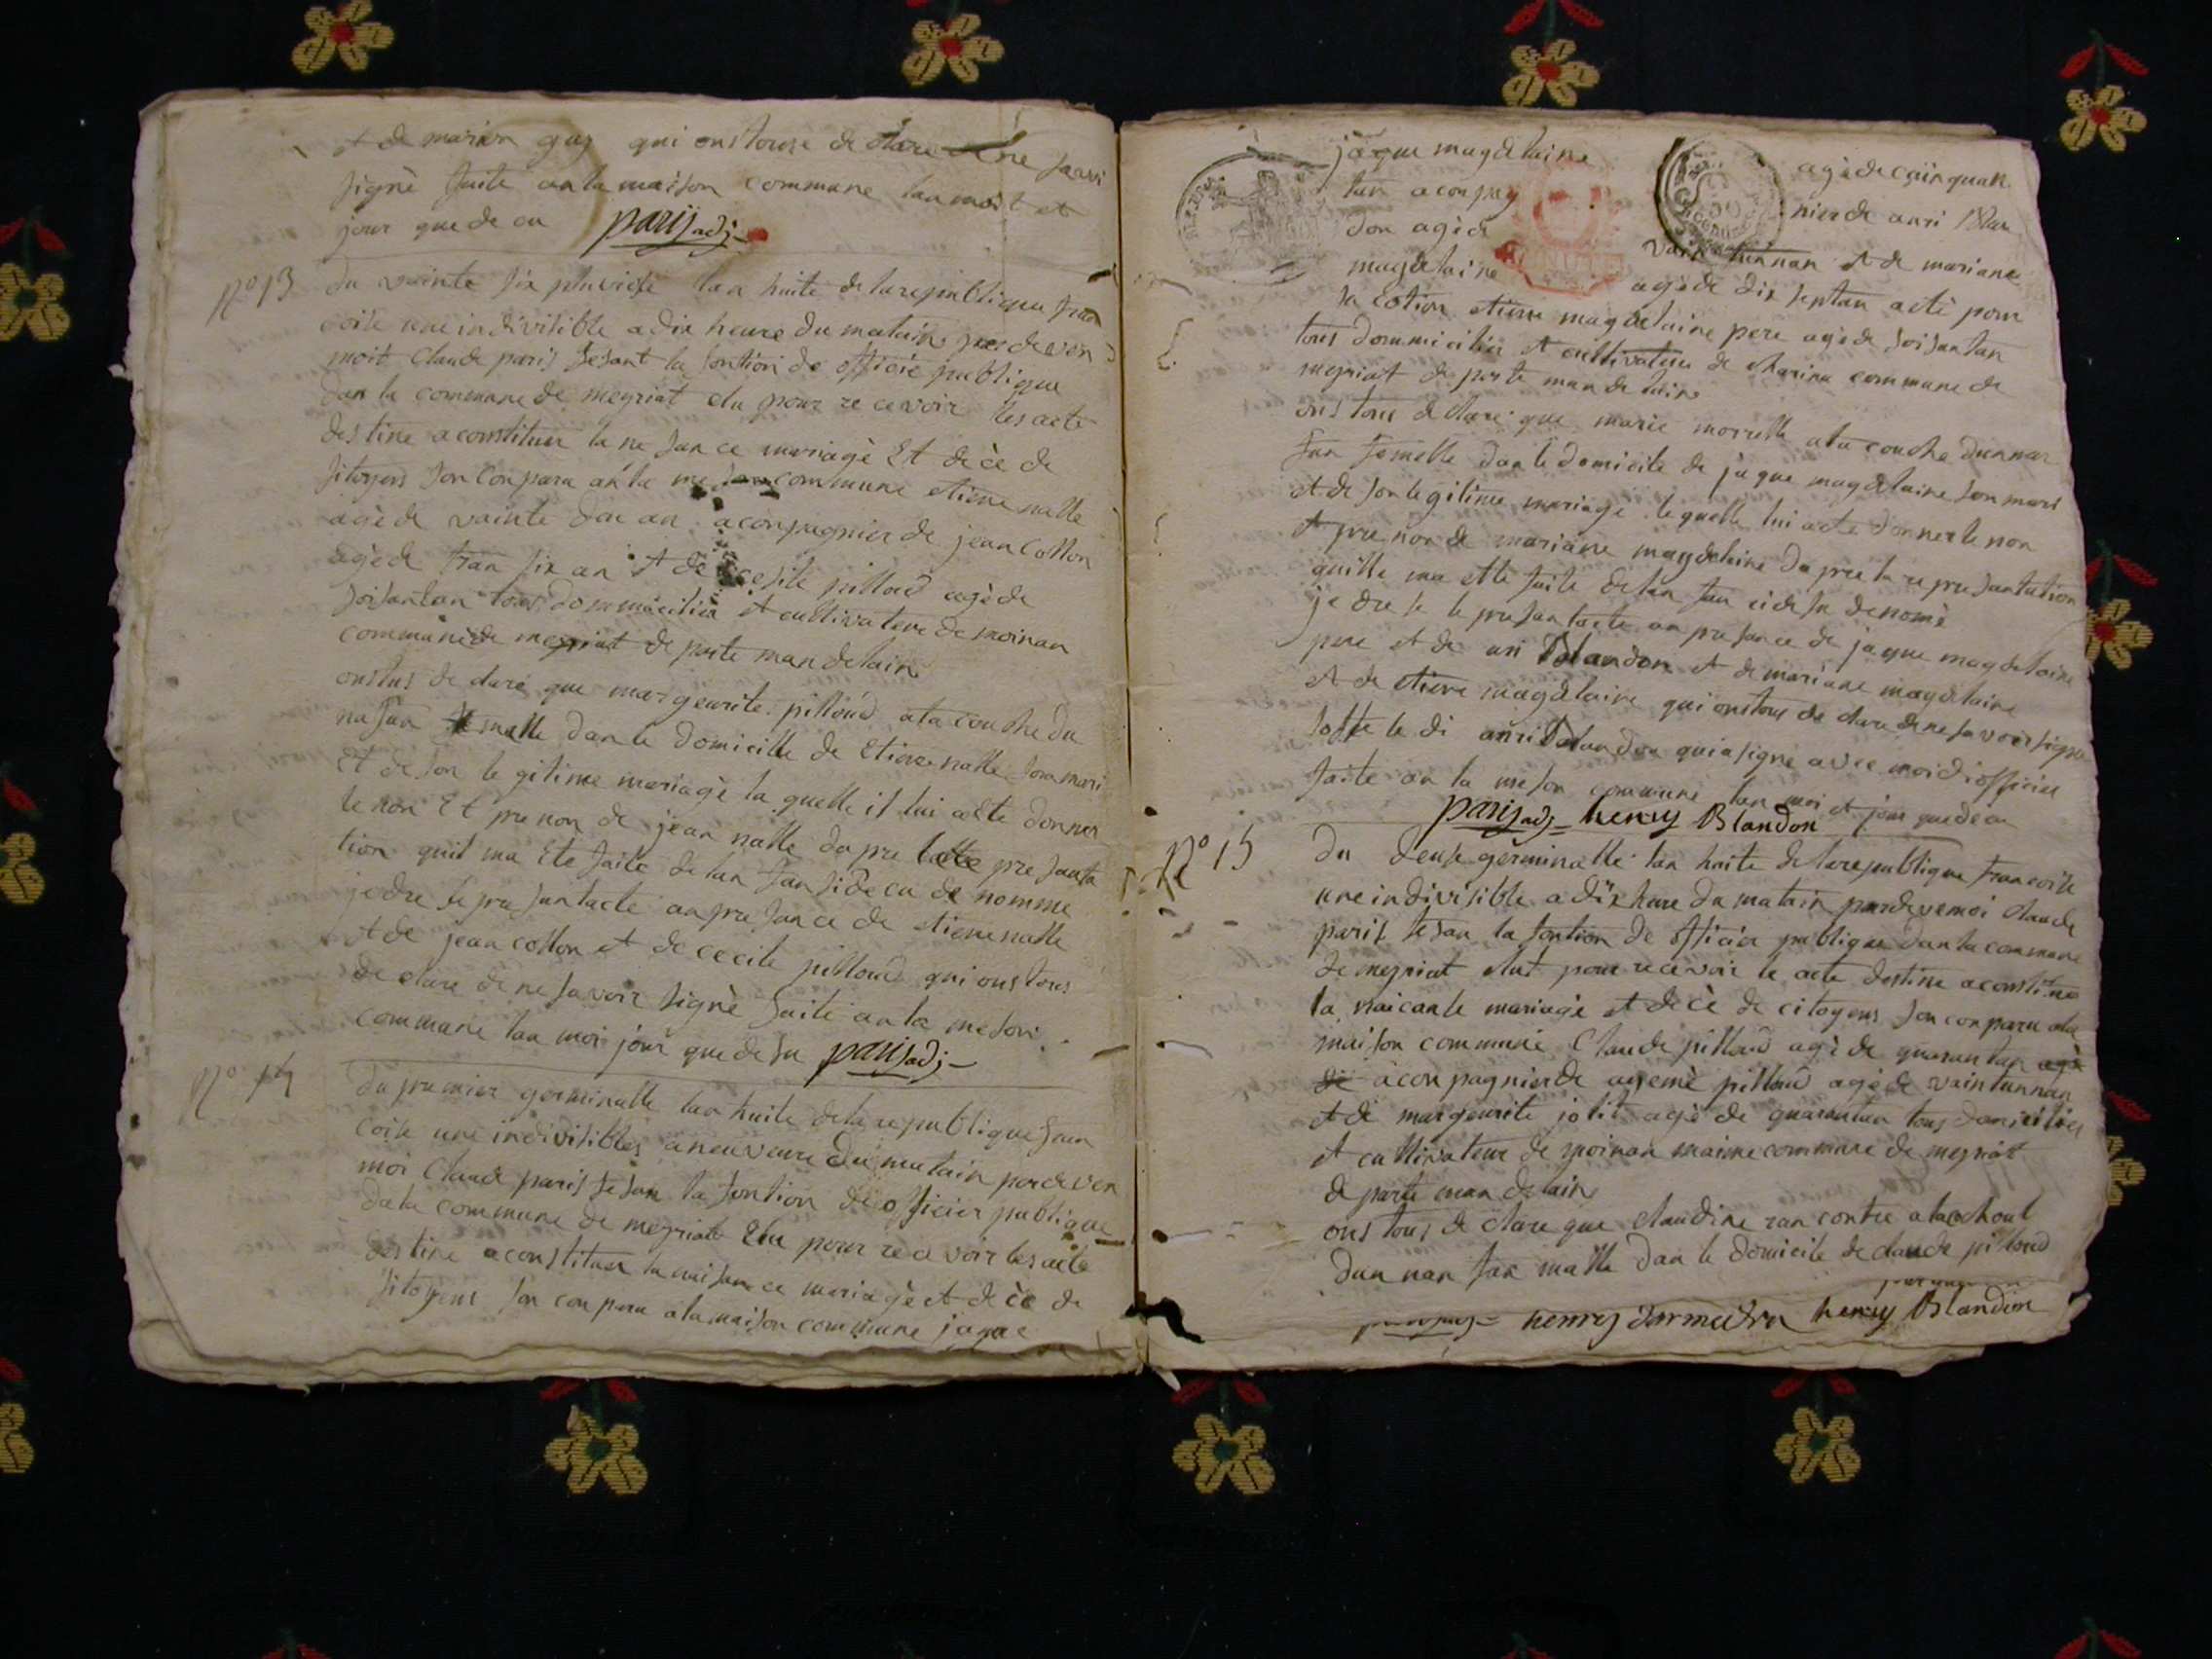 et de marion guy qui onstouse de clare de ne savoi
signè faite an la maison commune lan mois et
jour que de cu parisadj
No 13 du vainte six pluviose lan huite de la republique fran
coise une indivisible a dix heure du matain par deven
moit claude paris fesant la fontion de officié publique
dan la commune de meyriat elu pour re cevoir les acte
destine a constituer la ne san ce mariagè Et de cè de
sitoyens son conparu an la me son commune etiene nalle
agè de vainte dou an aconpagnier de jean collon
agè de tran six an et de cesile pilloud agè de
soisantan tous dommicilier et cultivateur de moinan
commune de meyriat de porte mandelain
onstus de claré que margeurite pilloud ata couche du
na fan malle dan le domicille de Etiene nalle son mari
Et de son le gitime mariagè la quelle il lui aete donner
le non Et pre non de jean nalle da pre lette pre santa
tion quil ma Ete faite de lan fan si de cu de nomme
je dre se le pre sant acte an pre san ce de etiene nalle
et de jean collon et de cecile pilloud qui ons tous
de clare de ne savoir signè faite an la meson
commune lan moi jour que de su parisadj
No 14 du premier germinalle lan huite de la republique fran
coise une indivisibles a neuv eure du matain par deven
moi claude paris fe san la fontion de officier publique
da la commune de meyriate Elu pour re ce voir les acte
destine a constituer la naisan ce mariagè et de cè de
sitoyens son con paru a la maison commune jaque
jaque magdelaine agè de cainquan
tan aconpag nier de anri Blan
don agè de vain tun nan et de mariane
magdelaine agè de dix septan actè pour
sa cotion etiene magdelaine pere agè de soisantan
tous dommicilier et cultivateur de charina commune de
meyriat de porte man de lain
ons tous de clare que marie morelle ata couche dunnan
fan femelle dan le domicile de jaque magdelaine son mari
et de son legitime mariagè le quelle lui aete donner le non
et pre non de mariane magdelaine da pre la re pre santation
quille ma ette faite de lan fan ci de su denomè
je dre se le pre san tacte an pre san ce de jaque magdelaine
pere et de anri Blandon et de mariane magdelaine
et de etiene magdelaine qui ons tous de clare de ne sa voir signe
soffe le di anri Blandon qui a signe avec moi di officier
faite an la meson commune lan moi et jour que de cu
parisadj henry Blandon
No 15 du deuse germinalle lan huite de la republique francoise
une indivisible a dix heure du matain par deve moi claude
paris fesan la fontion de officier publique dan la commune
de meyriat elut pour recevoir le acte destine a constitue
la naicanse mariagè et de cè de citoyens son con paru ala
maison commune Claude pilloud agè de quarantan agè
de aconpagnier de ayemè pilloud agè de vaintunnan
et de margeurite jolit agè de quarantan tous domicilier
et cultivateur de moinan maime commune de meyriat
de porte man de lain
ons tous de clare que claudine ran contre ata couche
dun nan fan malle dan le domicile de claude pilloud
henry Blandon